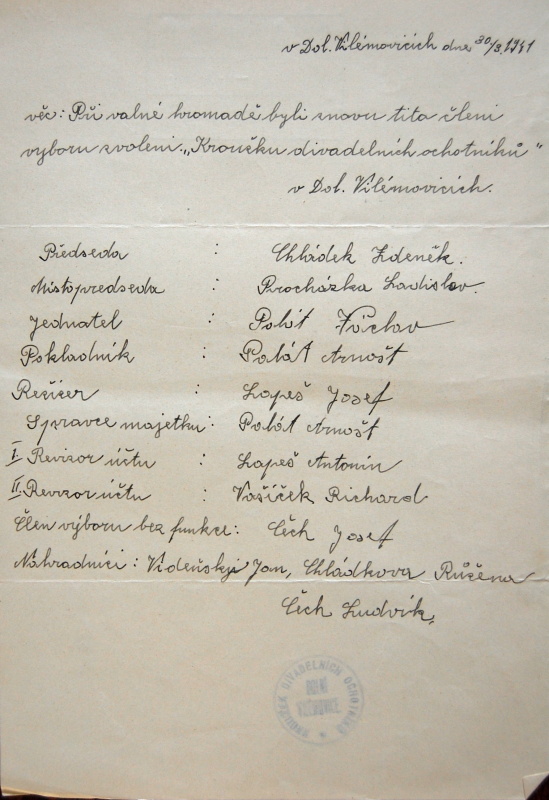 v Dol. Vilémovicích dne 30/3.1941
věc: Při valné hromadě byli znovu tito členi
výboru zvoleni. „Kroužku divadelních ochotníků"
v Dol. Vilémovicích.
Předseda : Chládek Zdeněk.
Místopředseda : Procházka Ladislav.
Jednatel : Palát Václav
Pokladník : Palát Arnošt
Režiser : Lapeš Josef
Spravce majetku : Palát Arnošt
I Revizor účtu : Lapeš Antonín
II Revizor účtu : Vašíček Richard
Člen výboru bez funkce : Čech Josef
Náhradníci : Videňský Jan, Chládkova Růžena
Čech Ludvík,
KROUŽEK DIVADELNÍCH OCHOTNÍKŮ
DOLNÍ